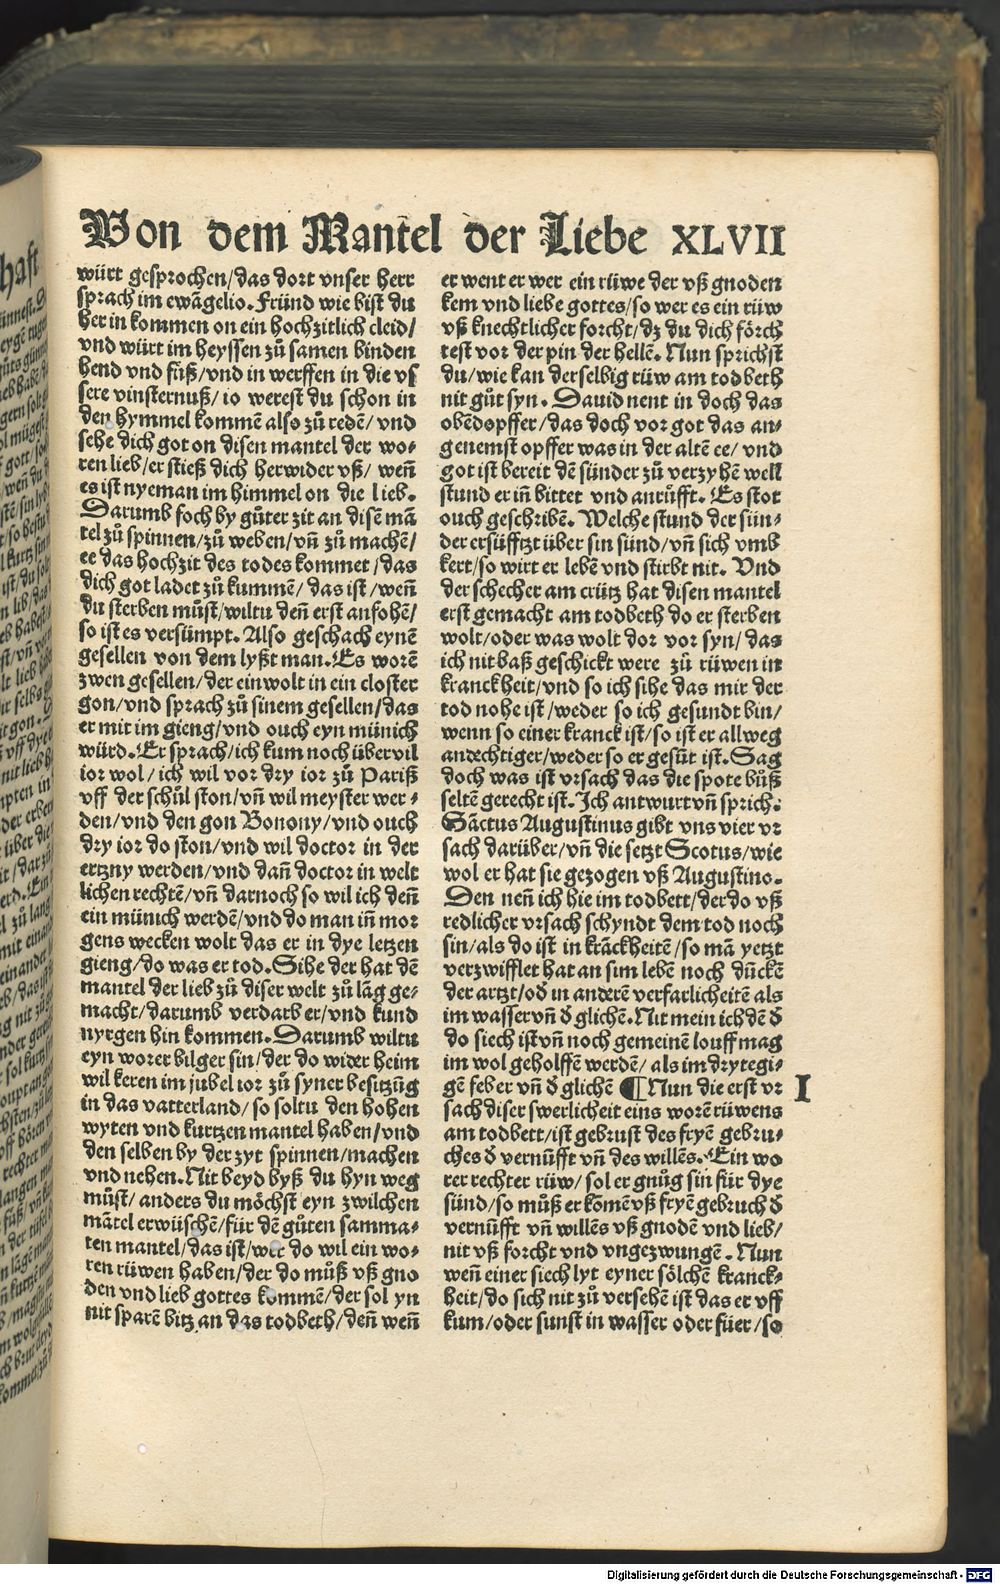 Von dem Mantel der Liebe XLVII
würt gesprochen/das dort vnser herr
sprach im ewãgelio. Fründ wie bist du
her in kommen on ein hochzitlich cleid/
vnd würt im heyssen zů samen binden
hend vnd füß/vnd in werffen in die vs
sere vinsternuß/ io werest du schon in
den hymmel kommẽ also zů redẽ/ vnd
sehe dich got on disen mantel der wo⸗
ren lieb/er stieß dich herwider vß/ weñ
es ist nyeman im himmel on die lieb.
Darumb foch by gůter zit an disẽ mã
tel zů spinnen/zů weben/vñ zů machẽ/
ee das hochzit des todes kommet/das
dich got ladet zů kummẽ/ das ist/weñ
du sterben můst/wiltu deñ erst anfohẽ/
so ist es versümpt. Also geschach eynẽ
gesellen von dem lyßt man. Es worẽ
zwen gesellen/der ein wolt in ein closter
gon/vnd sprach zů sinem gesellen/das
er mit im gieng/vnd ouch eyn münich
würd. Er sprach/ich kum noch über vil
ior wol/ ich wil vor dry ior zů Pariß
vff der schůl ston/vñ wil meyster wer⸗
den/vnd den gon Bonony/vnd ouch
dry ior do ston/vnd wil doctor in der
ertzny werden/vnd dañ doctor in welt
lichen rechtẽ/vñ darnoch so wil ich deñ
ein münich werdẽ/vnd do man iñ mor
gens wecken wolt das er in dye letzen
gieng/do was er tod. Sihe der hat dẽ
mantel der lieb zů diser welt zů lãg ge⸗
macht/darumb verdarb er/vnd kund
nyrgen hin kommen. Darumb wiltu
eyn worer bilger sin/der do wider heim
wil keren im jubel ior zů syner besitzũg
in das vatterland/so soltu den hohen
wyten vnd kurtzen mantel haben/vnd
den selben by der zyt spinnen/machen
vnd nehen. Nit beyd byß du hyn weg
můst/ anders du möchst eyn zwilchen
mãtel erwüschẽ/für dẽ gůten samma⸗
ten mantel/das ist/wer do wil ein wo⸗
ren rüwen haben/der do můß vß gno
den vnd lieb gottes kommẽ/der sol yn
nit sparẽ bitz an das todbeth/deñ weñ
er went er wer ein rüwe der vß gnoden
kem vnd liebe gottes/so wer es ein rüw
vß knechtlicher forcht/dz du dich förch
test vor der pin der hellẽ. Nun sprichst
du/wie kan derselbig rüw am todbeth
nit gůt syn. Dauid nent in doch das
obẽdopffer/das doch vor got das an⸗
genemst opffer was in der altẽ ee/ vnd
got ist bereit dẽ sünder zů verzyhẽ well
stund er iñ bittet vnd anrůfft. Es stot
ouch geschribẽ. Welche stund der sün⸗
der ersüfftzt über sin sünd/vñ sich vmb
kert/so wirt er lebẽ vnd stirbt nit. Vnd
der schecher am crütz hat disen mantel
erst gemacht am todbeth do er sterben
wolt/oder was wolt dor vor syn/ das
ich nit baß geschickt were zů rüwen in
kranckheit/vnd so ich sihe das mir der
tod nohe ist/weder so ich gesundt bin/
wenn so einer kranck ist/so ist er allweg
andechtiger/weder so er gesũt ist. Sag
doch was ist vrsach das die spote bůß
seltẽ gerecht ist. Ich antwurt vñ sprich.
Sãctus Augustinus gibt vns vier vr
sach darüber/vñ die setzt Scotus/wie
wol er hat sie gezogen vß Augustino.
Den neñ ich hie im todbett/der do vß
redlicher vrsach schyndt dem tod noch
sin/als do ist in krãckheitẽ/so mã yetzt
verzwifflet hat an sim lebẽ noch dũckẽ
der artzt/od̃ in anderẽ verfarlicheitẽ als
im wasser vñ d̃ glichẽ. Nit mein ich dẽ d̃
do siech ist vñ noch gemeinẽ louff mag
im wol geholffẽ werdẽ/ als im drytegi⸗
gẽ feber vñ d̃ glichẽ ¶ Nun die erst vr I
sach diser swerlicheit eins worẽ rüwens
am todbett/ist gebrust des fryẽ gebru⸗
ches d̃ vernũfft vñ des willẽs. Ein wo
rer rechter rüw/ sol er gnůg sin für dye
sünd/so můß er komẽ vß fryẽ gebruch d̃
vernũfft vñ willẽs vß gnodẽ vnd lieb/
nit vß forcht vnd vngezwungẽ. Nun
weñ einer siech lyt eyner sölchẽ kranck⸗
heit/do sich nit zů versehẽ ist das er vff
kum/oder sunst in wasser oder füer/so
Digitalisierung gefördert durch die Deutsche Forschungsgemeinschaft - DFG